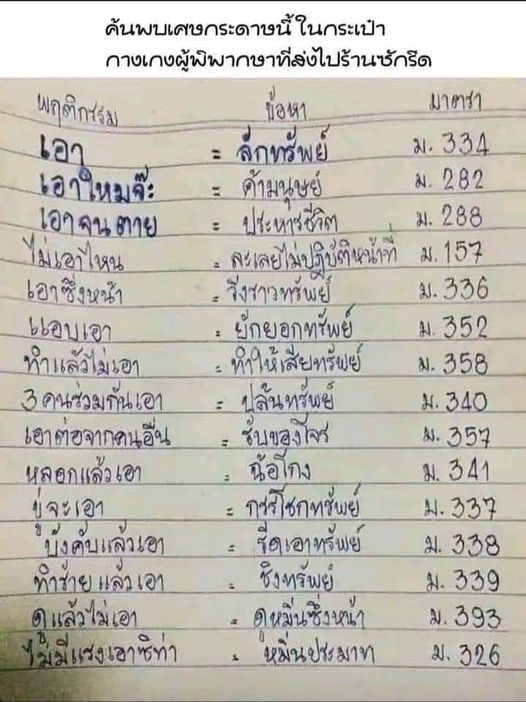 ค้นพบเศษกระดาษนี้ ในกระเป๋า
กางเกงผู้พิพากษาที่ส่งไปร้านซักรีด
พฤติกรรม ข้อหา มาตรา
เอา = ลักทรัพย์ ม. 334
เอาไหมจ๊ะ = ค้ามนุษย์ ม. 282
เอาจนตาย = ประหารชีวิต ม. 288
ไม่เอาไหน = ละเลยไม่ปฏิบัติหน้าที่ ม. 157
เอาซึ่งหน้า = วิ่งราวทรัพย์ ม. 336
แอบเอา = ยักยอกทรัพย์ ม. 352
ทำแล้วไม่เอา = ทำให้เสียทรัพย์ ม. 358
3 คนร่วมกันเอา = ปล้นทรัพย์ ม. 340
เอาต่อจากคนอื่น = รับของโจร ม. 357
หลอกแล้วเอา = ฉ้อโกง ม. 341
ขู่จะเอา = กรรโชกทรัพย์ ม. 337
บังคับแล้วเอา = รีดเอาทรัพย์ ม. 338
ทำร้ายแล้วเอา = ชิงทรัพย์ ม. 339
ดูแล้วไม่เอา = ดูหมิ่นซึ่งหน้า ม. 393
ไม่มีแรงเอาซิท่า = หมิ่นประมาท ม. 326